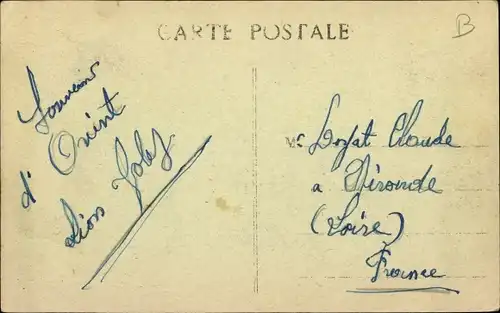 CARTE POSTALE
B
Souvenir
d'Orient
Léon
Mr Claude
a Néronde
(Loire)
France